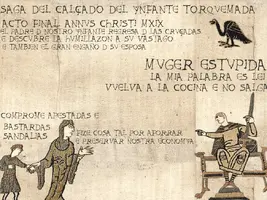 SAGA DEL CALÇADO DEL YNFANTE TORQUEMADA
ACTO FINAL ANNVS CHRISTI MXIX
EL PADRE D NOSTRO YNFANTE REGRESA D LAS CRUÇADAS
E DESCUBRE LA HUMILLAZON A SU VASTAGO
E TAMBIEN EL GRAN ENGAÑO D SU ESPOSA
MVGER ESTUPIDA
LA MIA PALABRA ES LEI
VUELVA A LA COCINA E NO SALGA
COMPROME APESTADAS E
BASTARDAS
SANDALIAS
FIZE COSA TAL POR AFORRAR
E PRESERVAR NOSTRA ECONOMVA